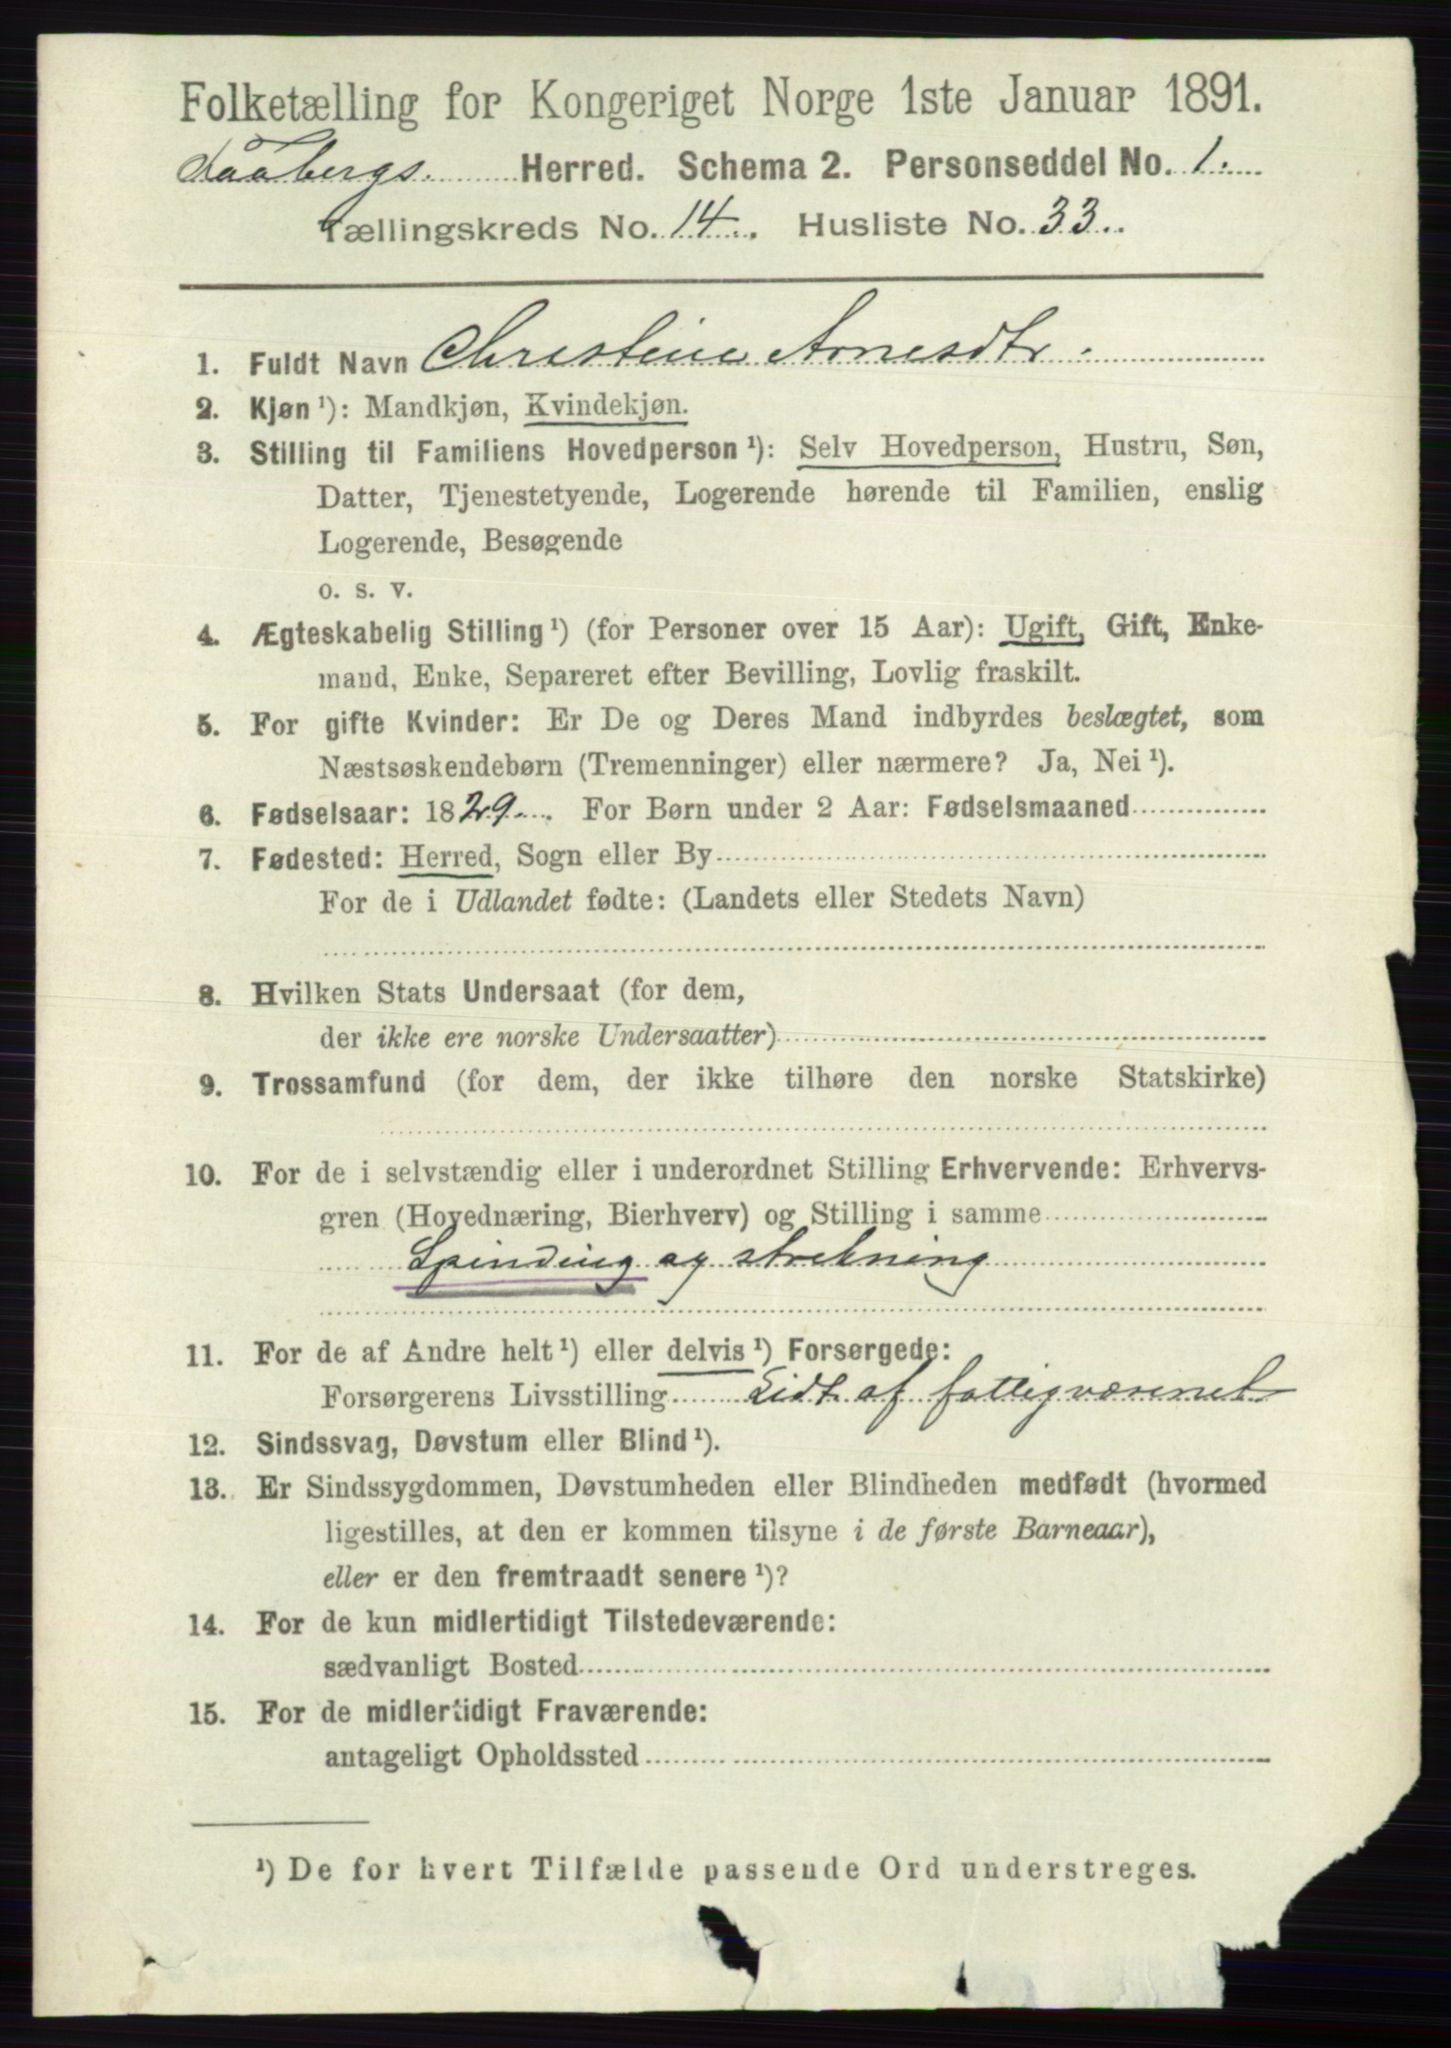 Folketælling for Kongeriget Norge 1ste Januar 1891.
Faabergs Herred. Schema 2. Personseddel No. 1.
Tællingskreds No. 14. Husliste No. 33.
1. Fuldt Navn Christine Arnesdtr.
2. Kjøn ¹): Mandkjøn, Kvindekjøn.
3. Stilling til Familiens Hovedperson ¹): Selv Hovedperson, Hustru, Søn,
Datter, Tjenestetyende, Logerende hørende til Familien, enslig
Logerende, Besøgende
o. s. v.
4. Ægteskabelig Stilling ¹) (for Personer over 15 Aar): Ugift, Gift, Enke-
mand, Enke, Separeret efter Bevilling, Lovlig fraskilt.
5. For gifte Kvinder: Er De og Deres Mand indbyrdes beslægtet, som
Næstsøskendebørn (Tremenninger) eller nærmere? Ja, Nei ¹).
6. Fødselsaar: 1829. For Børn under 2 Aar: Fødselsmaaned
7. Fødested: Herred, Sogn eller By
For de i Udlandet fødte: (Landets eller Stedets Navn)
8. Hvilken Stats Undersaat (for dem,
der ikke ere norske Undersaatter)
9. Trossamfund (for dem, der ikke tilhøre den norske Statskirke)
10. For de i selvstændig eller i underordnet Stilling Erhvervende: Erhvervs-
gren (Hovednæring, Bierhverv) og Stilling i samme
Spinding og strekning
11. For de af Andre helt ¹) eller delvis ¹) Forsørgede:
Forsørgerens Livsstilling Lidt af fattigvæsenet
12. Sindssvag, Døvstum eller Blind ¹).
13. Er Sindssygdommen, Døvstumheden eller Blindheden medfødt (hvormed
ligestilles, at den er kommen tilsyne i de første Barneaar),
eller er den fremtraadt senere ¹)?
14. For de kun midlertidigt Tilstedeværende:
sædvanligt Bosted
15. For de midlertidigt Fraværende:
antageligt Opholdssted
¹) De for hvert Tilfælde passende Ord understreges.